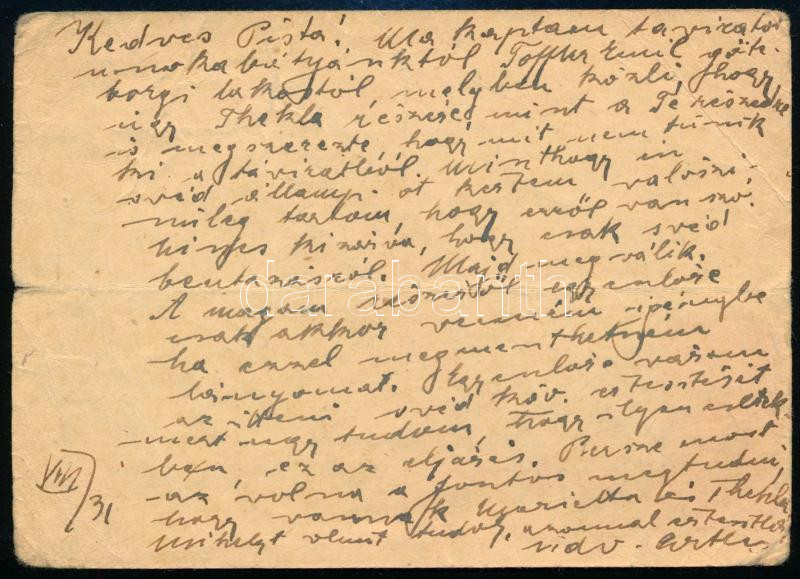 Kedves Pista! Ma kaptam táviratot
unokabátyánktól Toffler Emil göte-
borgi lakostól, melyben közli, hogy
úgy Thekla részére, mint a Te részedre
is megszerezte, hogy mit nem tünik
ki a táviratból. Minthogy én
svéd államp.-ot kértem, valószi-
nüleg tartom, hogy erről van szó.
hogy csak svéd
beutazásról. Majd meg válik.
A magam részéről egyenlőre
csak akkor venném igénybe
ha ezzel megmenthetném
lányomat. Egyenlőre várom
az itteni svéd köv. értesítését
mert úgy tudom, hogy ilyen esetek-
ben ez az eljárás. Persze most
az volna a fontos megtudni,
hogy vannak Marietta és Thekla
Mihelyt valamit tudsz, azonnal értesíts
üdv.
VIII/31
darabanth